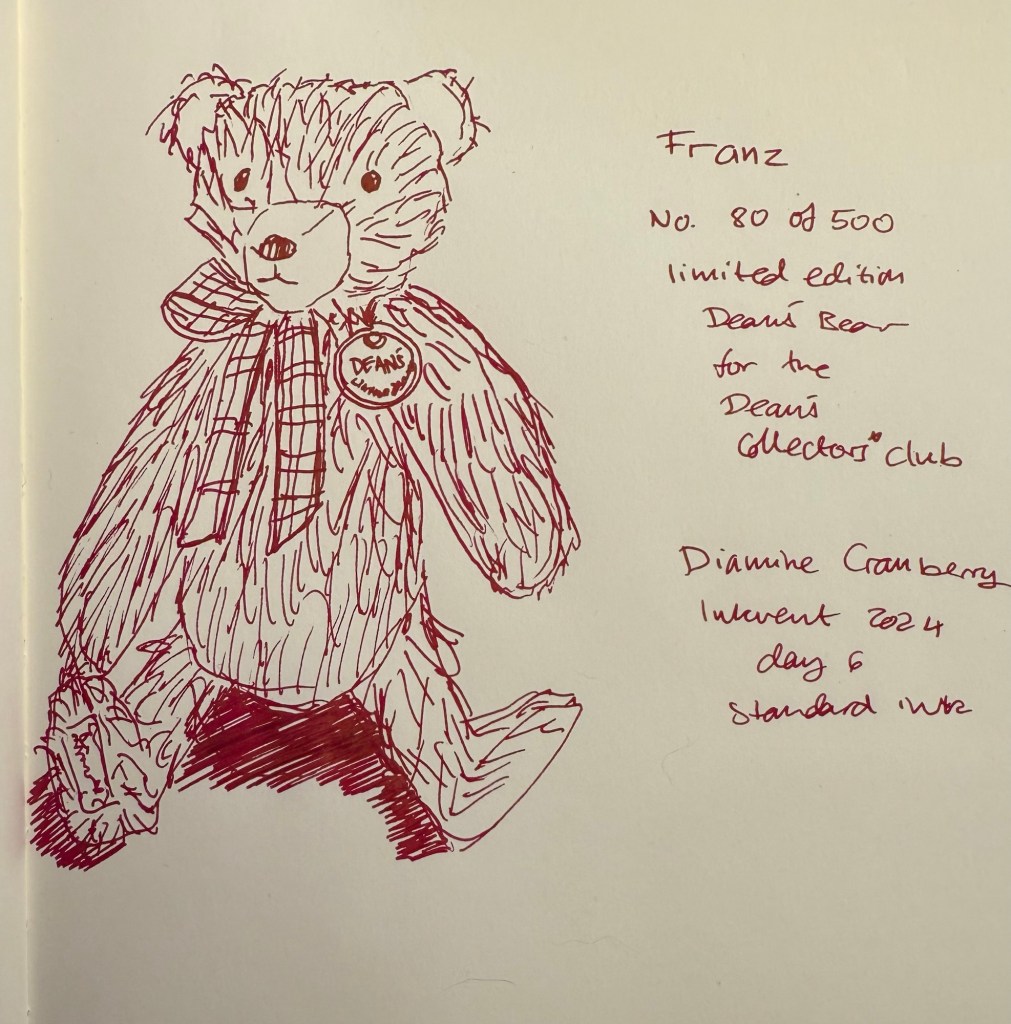 DEAN'S
Franz
No. 80 of 500
limited edition
Dean's Bear
for the
Dean's
Collectors' Club
Diamine Cranberry
Inkvent 2024
day 6
standard ink